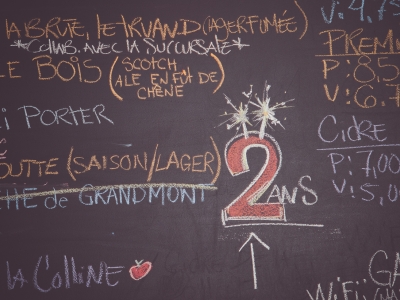 LA BRUTE, LE TRUAND (LAGER FUMÉE)
*COLLAB. AVEC LA SUCCURSALE*
LE BOIS (SCOTCH
ALE EN FÛT DE
CHÊNE)
PORTER
GOUTTE (SAISON/LAGER)
de GRANDMONT
LA COLLINE
2 ANS
V: 4,75
PREMI
P: 8,5
V: 6.7
CIDRE
P: 7,00
V: 5,0
GA
WiFi